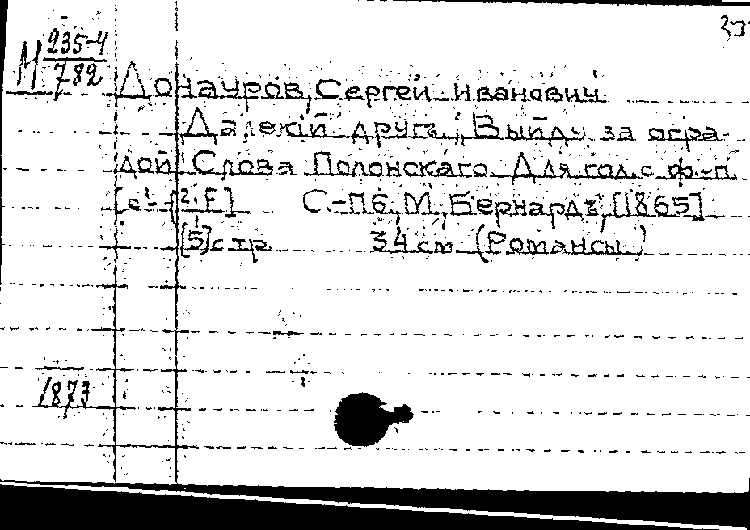 М 235-4
782
Донауров, Сергей Иванович
Далекiй другъ; Выйду за огра-
дой Слова Полонскаго. Для гол. с ф.-п.
[e¹-f2.F] С.-Пб, М. Бернардъ, [1865]
[5] стр 34 см (Романсы)
1873